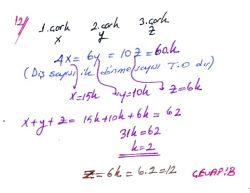 12) 1.çark 2.çark 3.çark
x y z
4x = 6y = 10z = 60k
(Diş sayısı ile dönme sayısı T.O dır)
x=15k y=10k z=6k
x+y+z = 15k+10k+6k = 62
31k=62
k=2
z=6k = 6.2=12 CEVAP:B